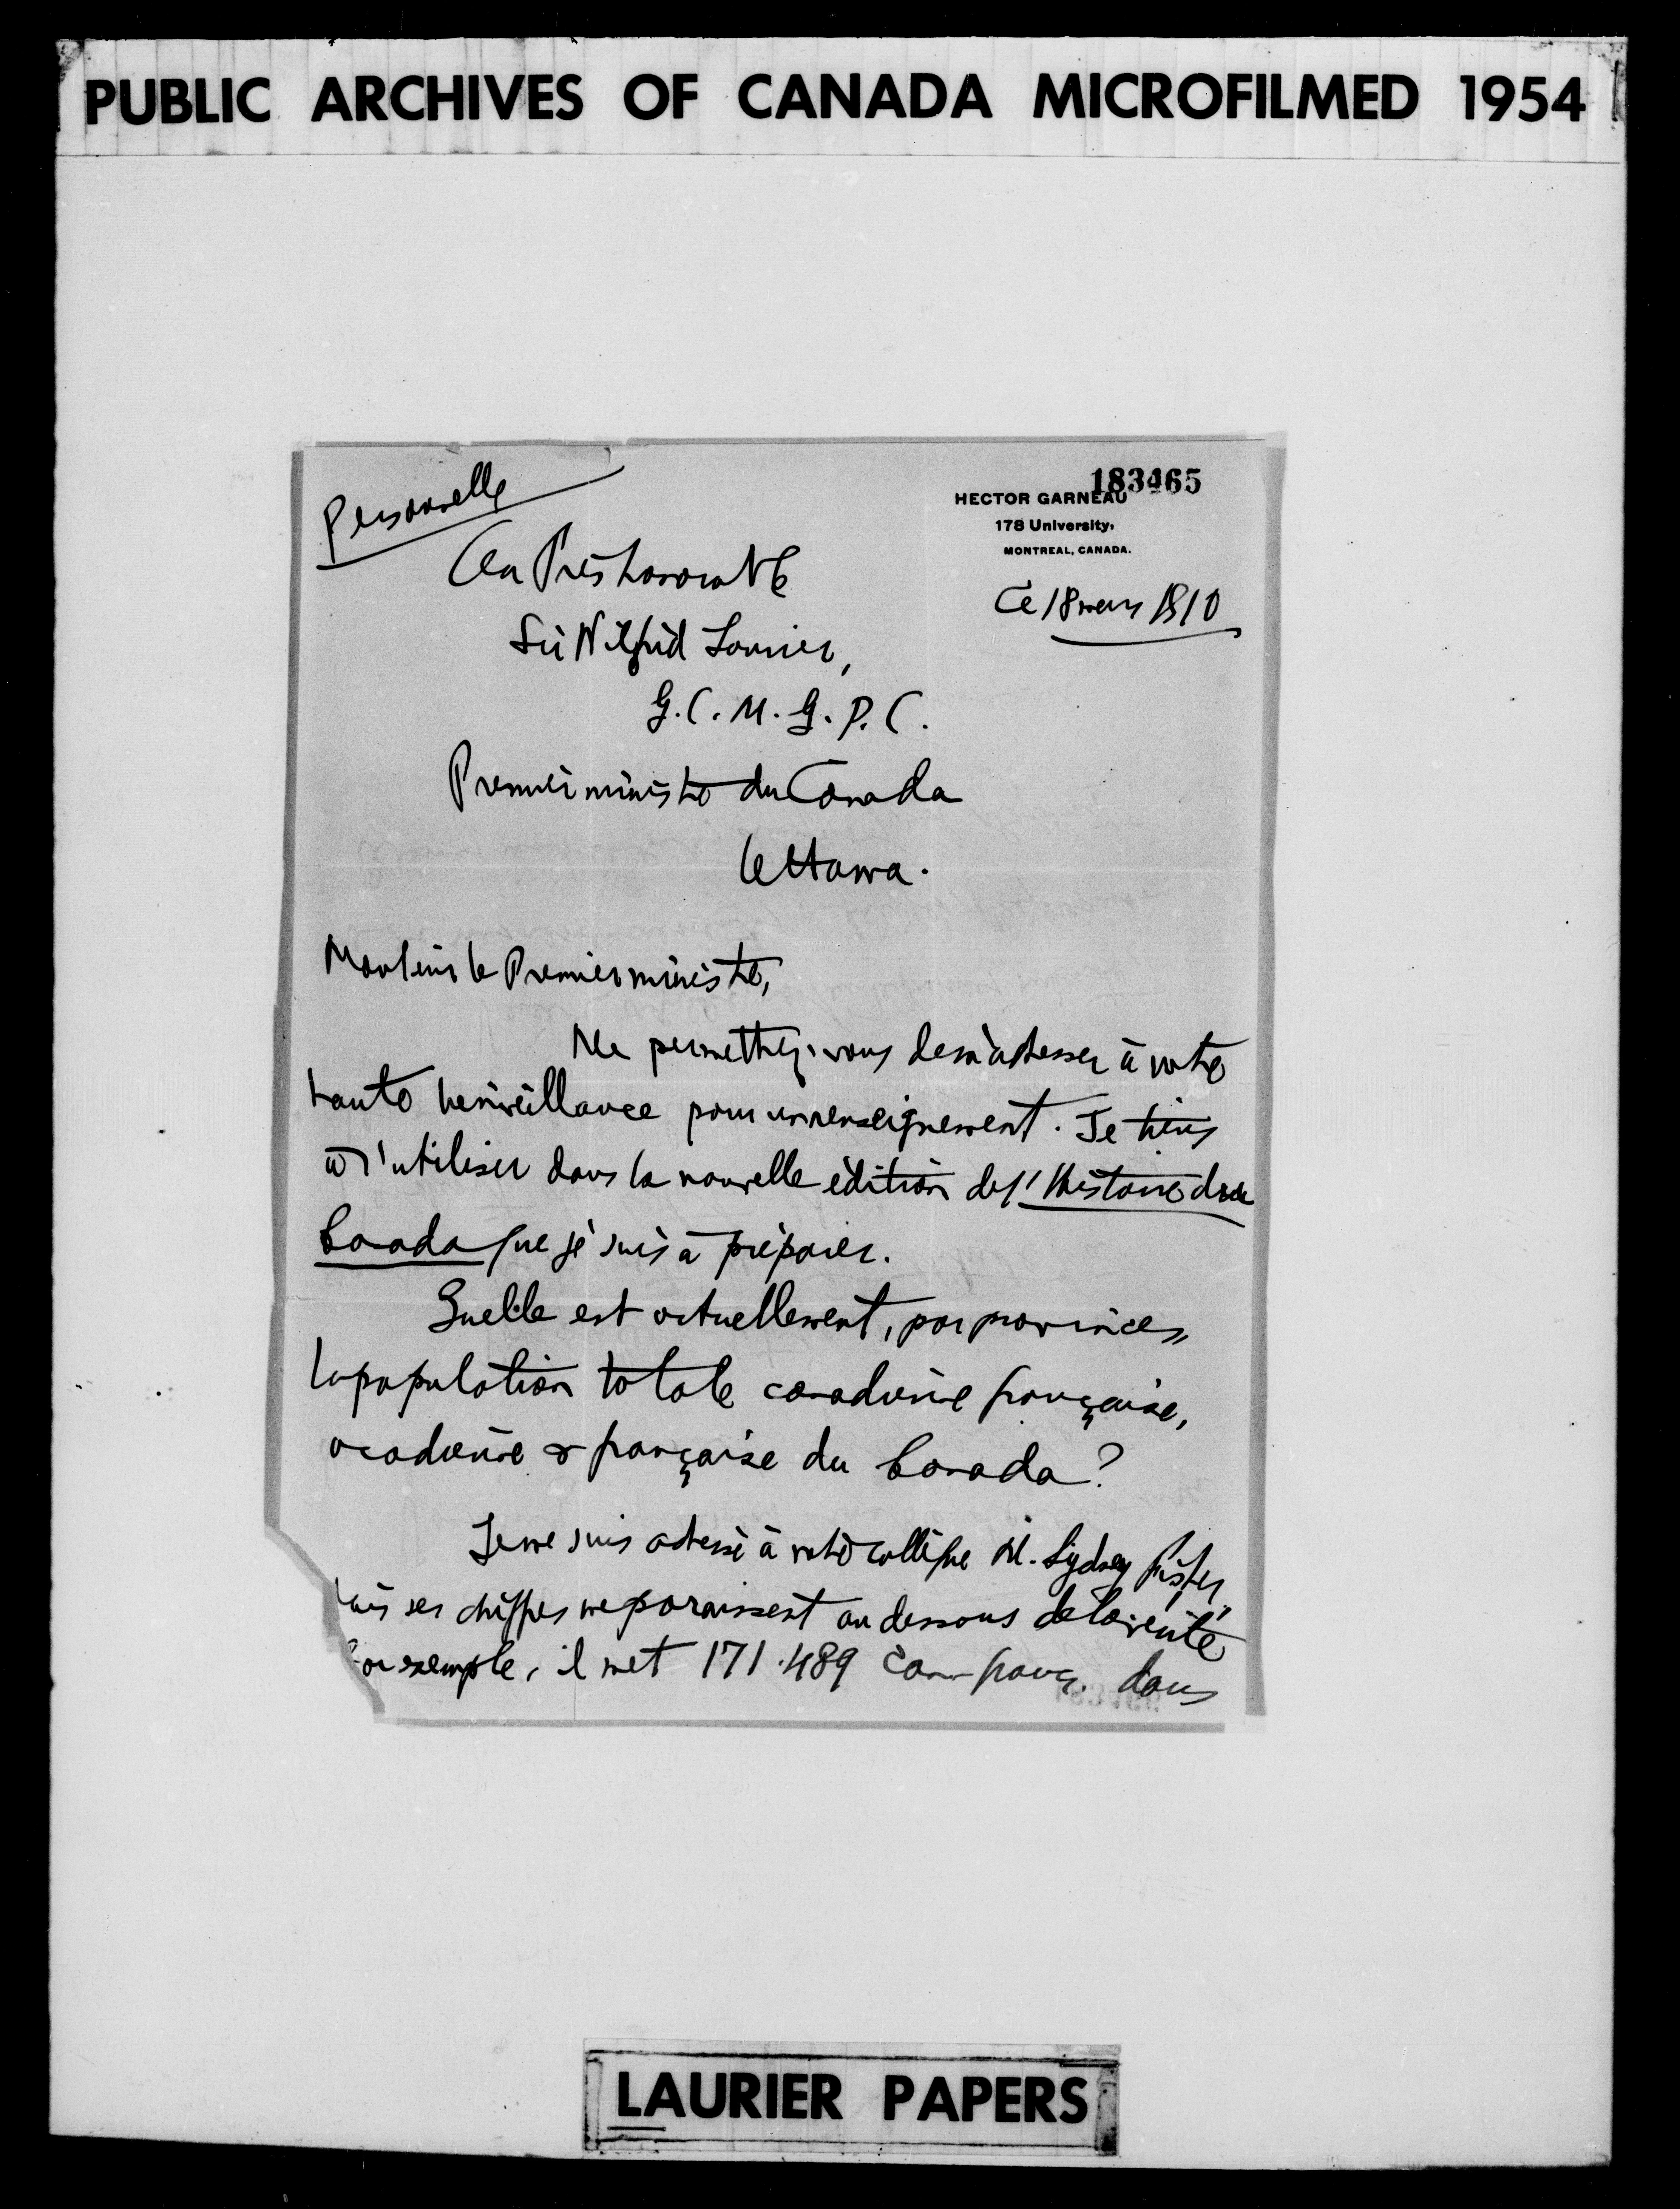 PUBLIC ARCHIVES OF CANADA MICROFILMED 1954
183465
Personnelle
HECTOR GARNEAU
178 University,
MONTREAL, CANADA.
Au Très honorable
Ce 18 mars 1910
Sir Wilfrid Laurier,
G.C.M.G. P.C.
Premier ministre du Canada
Ottawa.
Monsieur le Premier ministre,
Me permettez-vous de m'adresser à votre
haute bienveillance pour un renseignement. Je tiens
à l'utiliser dans la nouvelle édition de l'Histoire du
Canada que je suis à préparer.
Quelle est actuellement, par provinces,
la population totale canadienne française,
acadienne & française du Canada?
Je me suis adressé à votre collègue M. Sydney Fisher,
mais ses chiffres me paraissent au dessous de la vérité
Par exemple, il met 171.489 Can-franç. dans
LAURIER PAPERS